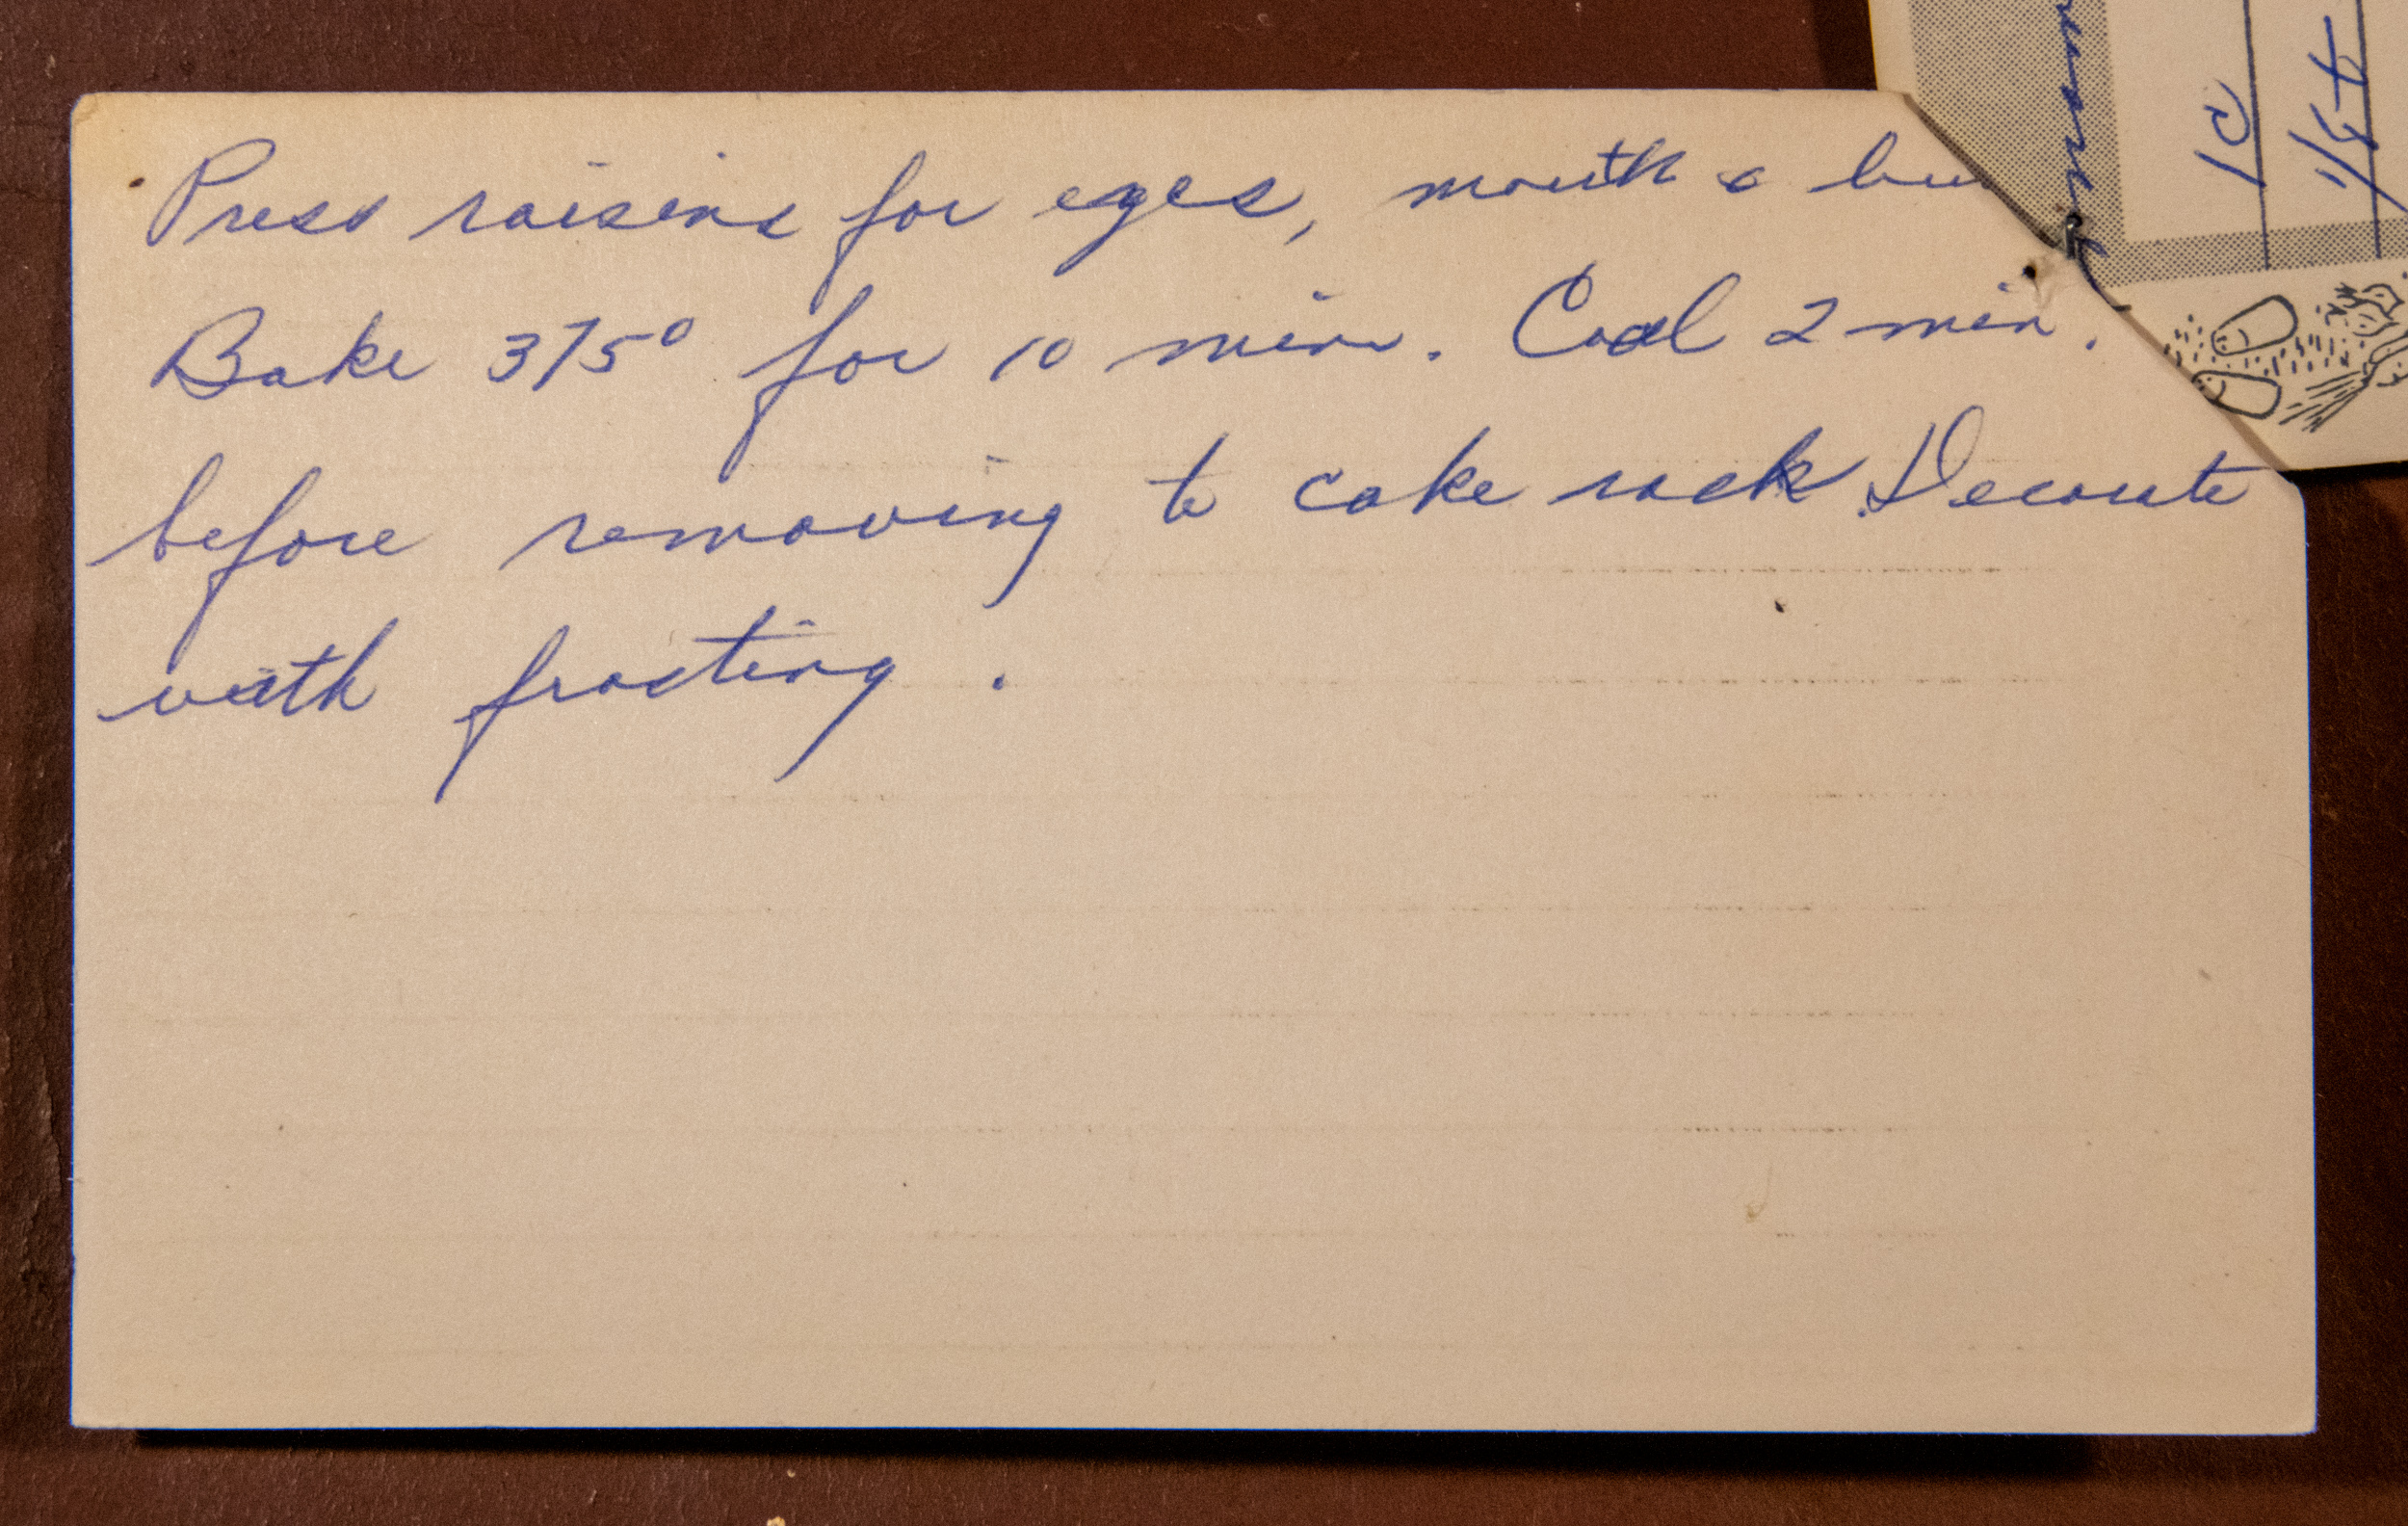 Press raisins for eyes, mouth &
Bake 375° for 10 min. Cool 2 min.
before removing to cake rack. Decorate
with frosting.
1 c